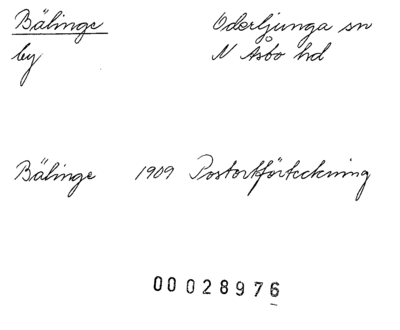 Bälinge Oderljunga sn
by N Åsbo hd
Bälinge 1909 Postortförteckning
00028976